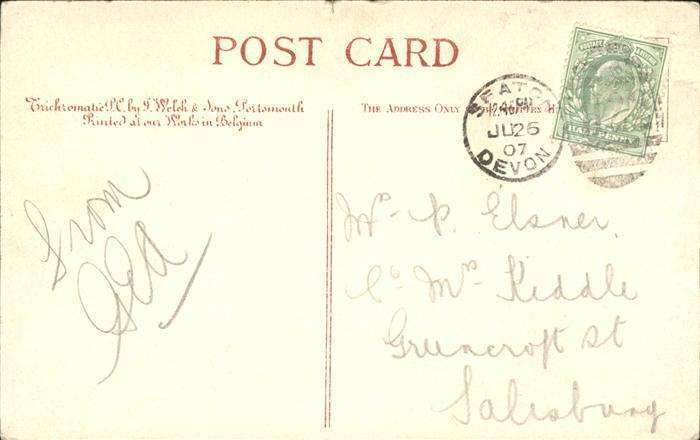 POST CARD
Trichromatic P.C. by J. Welch & Sons, Portsmouth
Printed at our Works in Belgium
THE ADDRESS ONLY
SEATON
JU 26
07
DEVON
From
Mr. P. Elsner.
Co Mrs Kiddle
Greencroft St
Salisbury